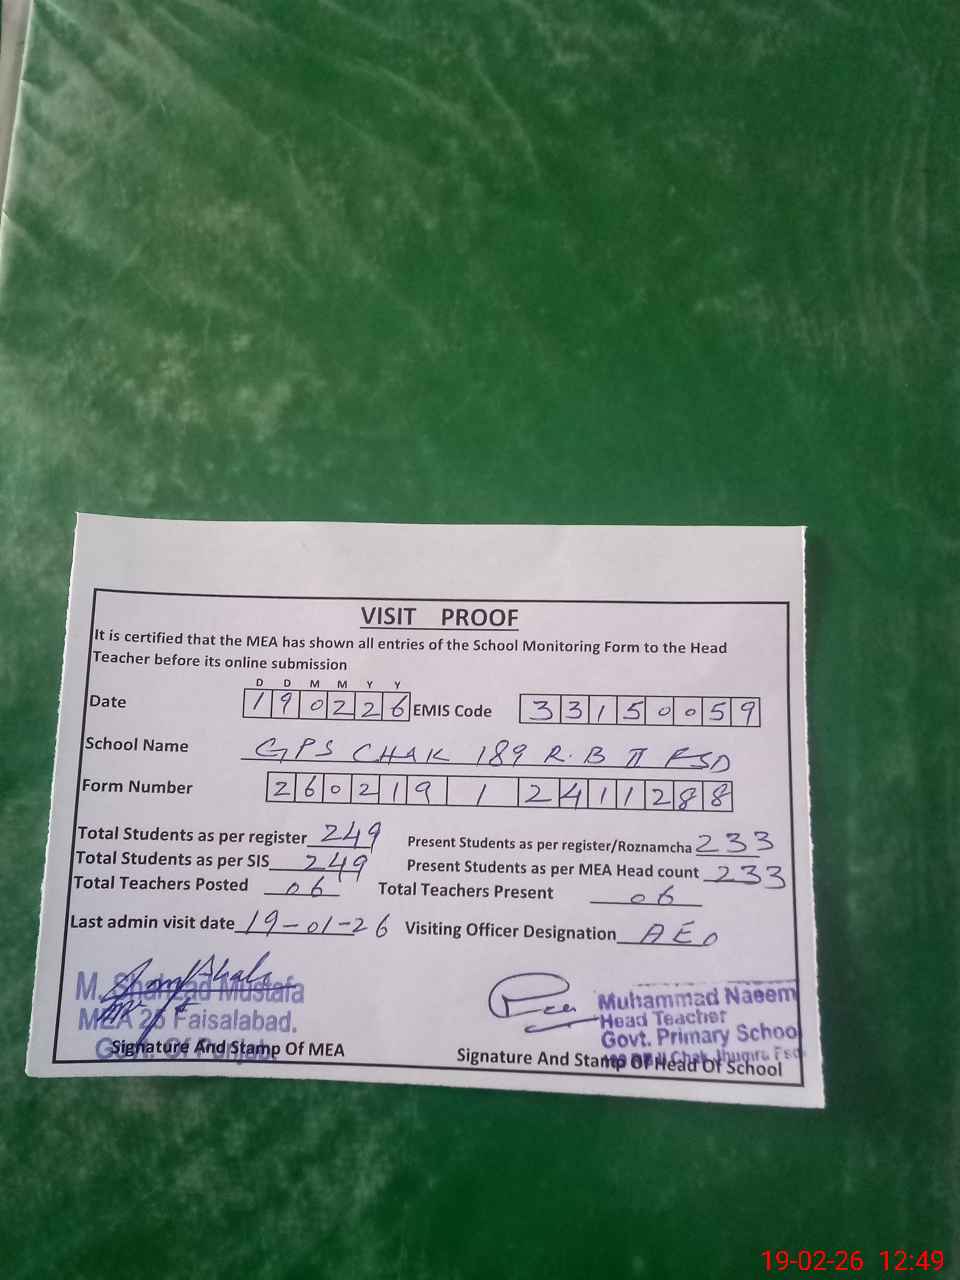 VISIT PROOF
It is certified that the MEA has shown all entries of the School Monitoring Form to the Head
Teacher before its online submission
D D M M Y Y
Date 190226 EMIS Code 33150059
School Name GPS CHAK 189 R.B II FSD
Form Number 260219 1 2411288
Total Students as per register 249 Present Students as per register/Roznamcha 233
Total Students as per SIS 249 Present Students as per MEA Head count 233
Total Teachers Posted 06 Total Teachers Present 06
Last admin visit date 19-01-26 Visiting Officer Designation AEO
M. Shahzad Mustafa
MEA 26 Faisalabad.
Govt. Of Punjab
Signature And Stamp Of MEA
Muhammad Naeem
Head Teacher
Govt. Primary School
Chak Jhugra Fsd
Signature And Stamp Of Head Of School
19-02-26 12:49